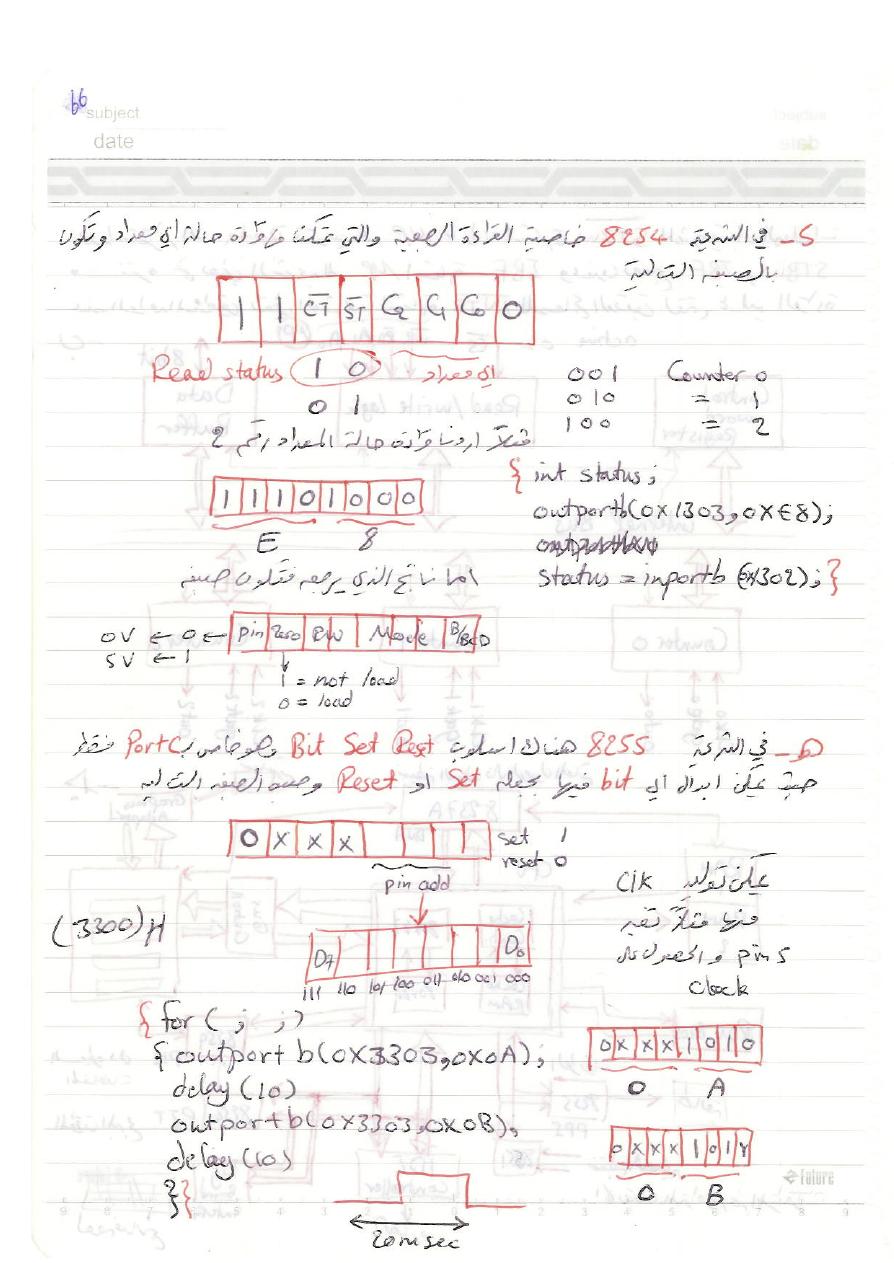 66
subject
date
5- في الشريحة 8254 خاصية القراءة الرجعية والتي تمكننا من قراءة حالة اي معداد وتكون
بالصيغة التالية
1 1 C̅T̅ S̅T̅ C2 C1 C0 0
Read status 1 0 اي معداد
0 1
001 Counter 0
010 = 1
100 = 2
مثلاً اردنا قراءة حالة المعداد رقم 2
1 1 1 0 1 0 0 0
E 8
{ int status;
outportb(0x1303,0xE8);
status = inportb(0x1302); }
اما ناتج الذي يرجعه فتكون صيغته
0V ← 0 ← Pin Zero RW Mode B/BCD
5V ← 1
1 = not load
0 = load
6- في الشريحة 8255 هناك اسلوب Bit Set Rest وهو خاص بـ Port C فقط
حيث يمكن ابدال اي bit فيها بجعله Set او Reset وحسب الصيغه التاليه
0 X X X set 1
reset 0
pin add
يمكن توليد Clk
منها مثلاً
pin 5 والحصول على
Clock
(3300)H
D7 D0
111 110 101 100 011 010 001 000
{ for ( ; ; )
{ outport b(0x3303,0x0A);
delay (10)
outport b(0x3303,0x0B);
delay (10)
}}
0 X X X 1 0 1 0
0 A
0 X X X 1 0 1 1
0 B
20 msec
Future